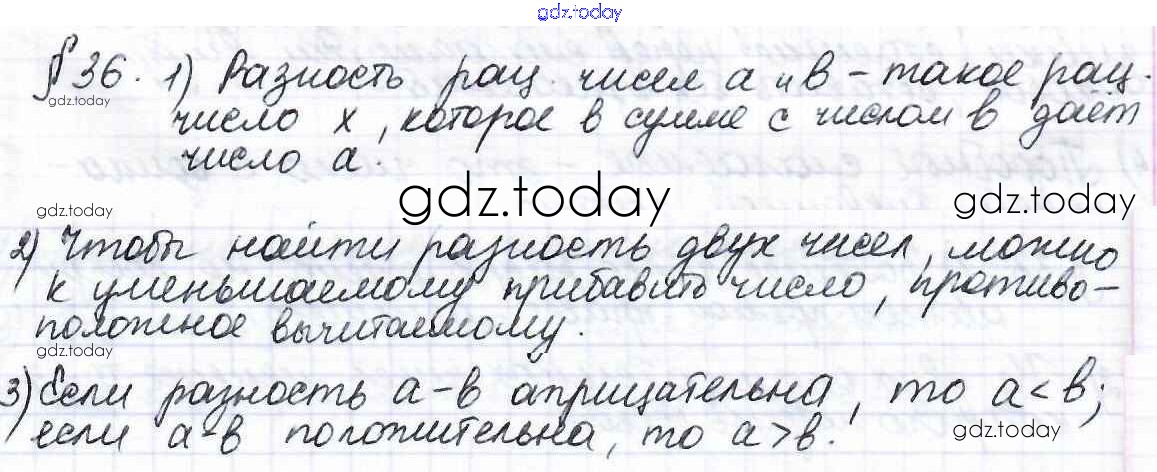 gdz.today
§ 36. 1) Разность рац. чисел a и b – такое рац.
gdz.today
число x, которое в сумме с числом b даёт
число a.
gdz.today gdz.today gdz.today
2) Чтобы найти разность двух чисел, можно
к уменьшаемому прибавить число, противо-
положное вычитаемому.
gdz.today
3) Если разность a-b отрицательна, то a < b;
если a-b положительна, то a > b.
gdz.today